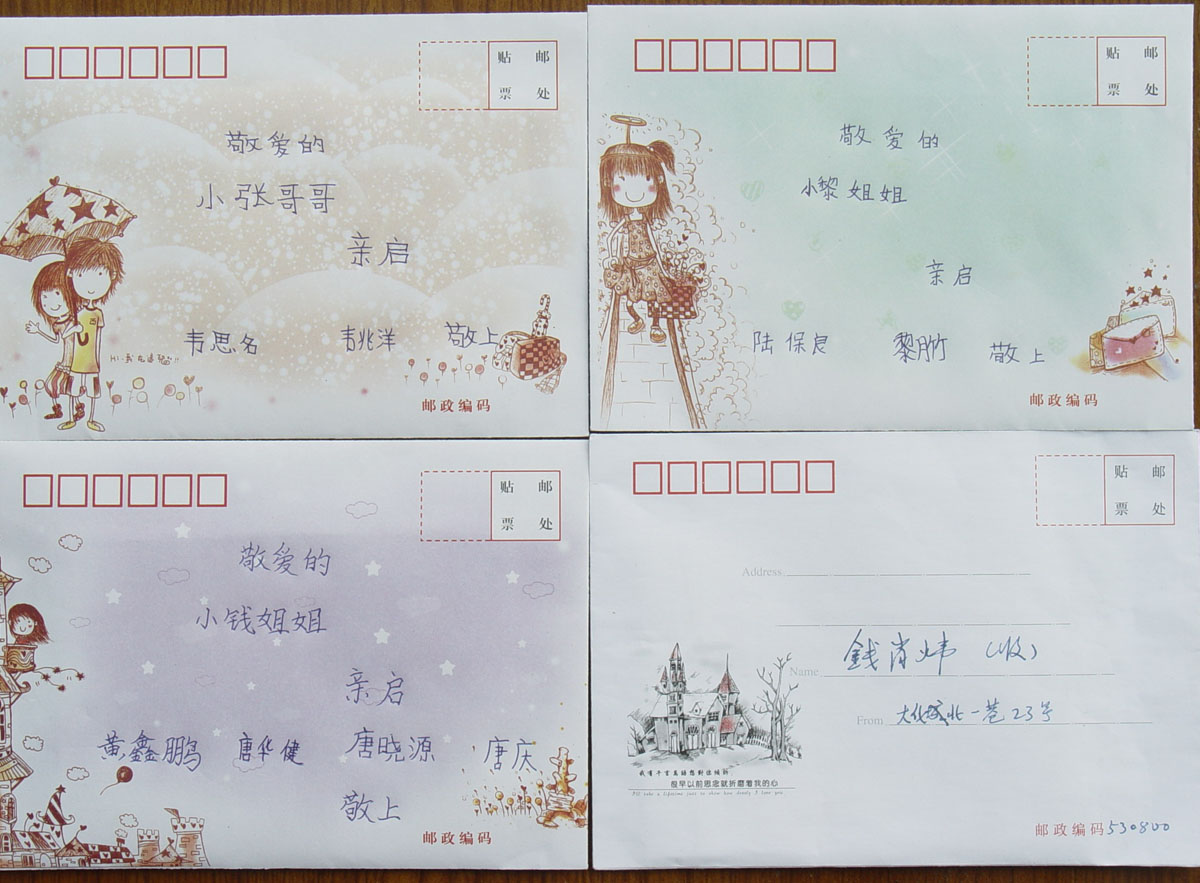 贴 邮
票 处
敬爱的
小张哥哥
亲启
韦思名 韦兆洋 敬上
邮政编码
贴 邮
票 处
敬爱的
小黎姐姐
亲启
陆保良 敬上
邮政编码
贴 邮
票 处
敬爱的
小钱姐姐
亲启
黄鑫鹏 唐华健 唐晓源 唐庆
敬上
邮政编码
贴 邮
票 处
Address
Name 錢肖炜(收)
From 大化城北一巷23号
我有千言万语想对你倾诉
但早以前思念就折磨着我的心
I'll take a lifetime just to show how dearly I love you
邮政编码530800